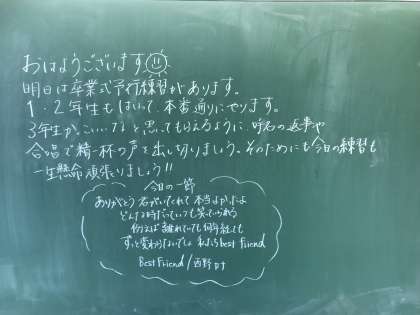 おはようございます
明日は卒業式予行練習があります。
1・2年生もはいって、本番通りにやります。
3年生が、こいいなと思ってもらえるように、呼名の返事や
合唱で精一杯の声を出し切りましょう。そのためにも今日の練習も
一生懸命頑張りましょう!!
今日の一節
ありがとう 君がいてくれて 本当よかったよ
どんな時だっていつも笑っていられる
例えば 離れていても 何年経っても
ずっと変わらないでしょ 私たち best friend
Best Friend / 西野カナ